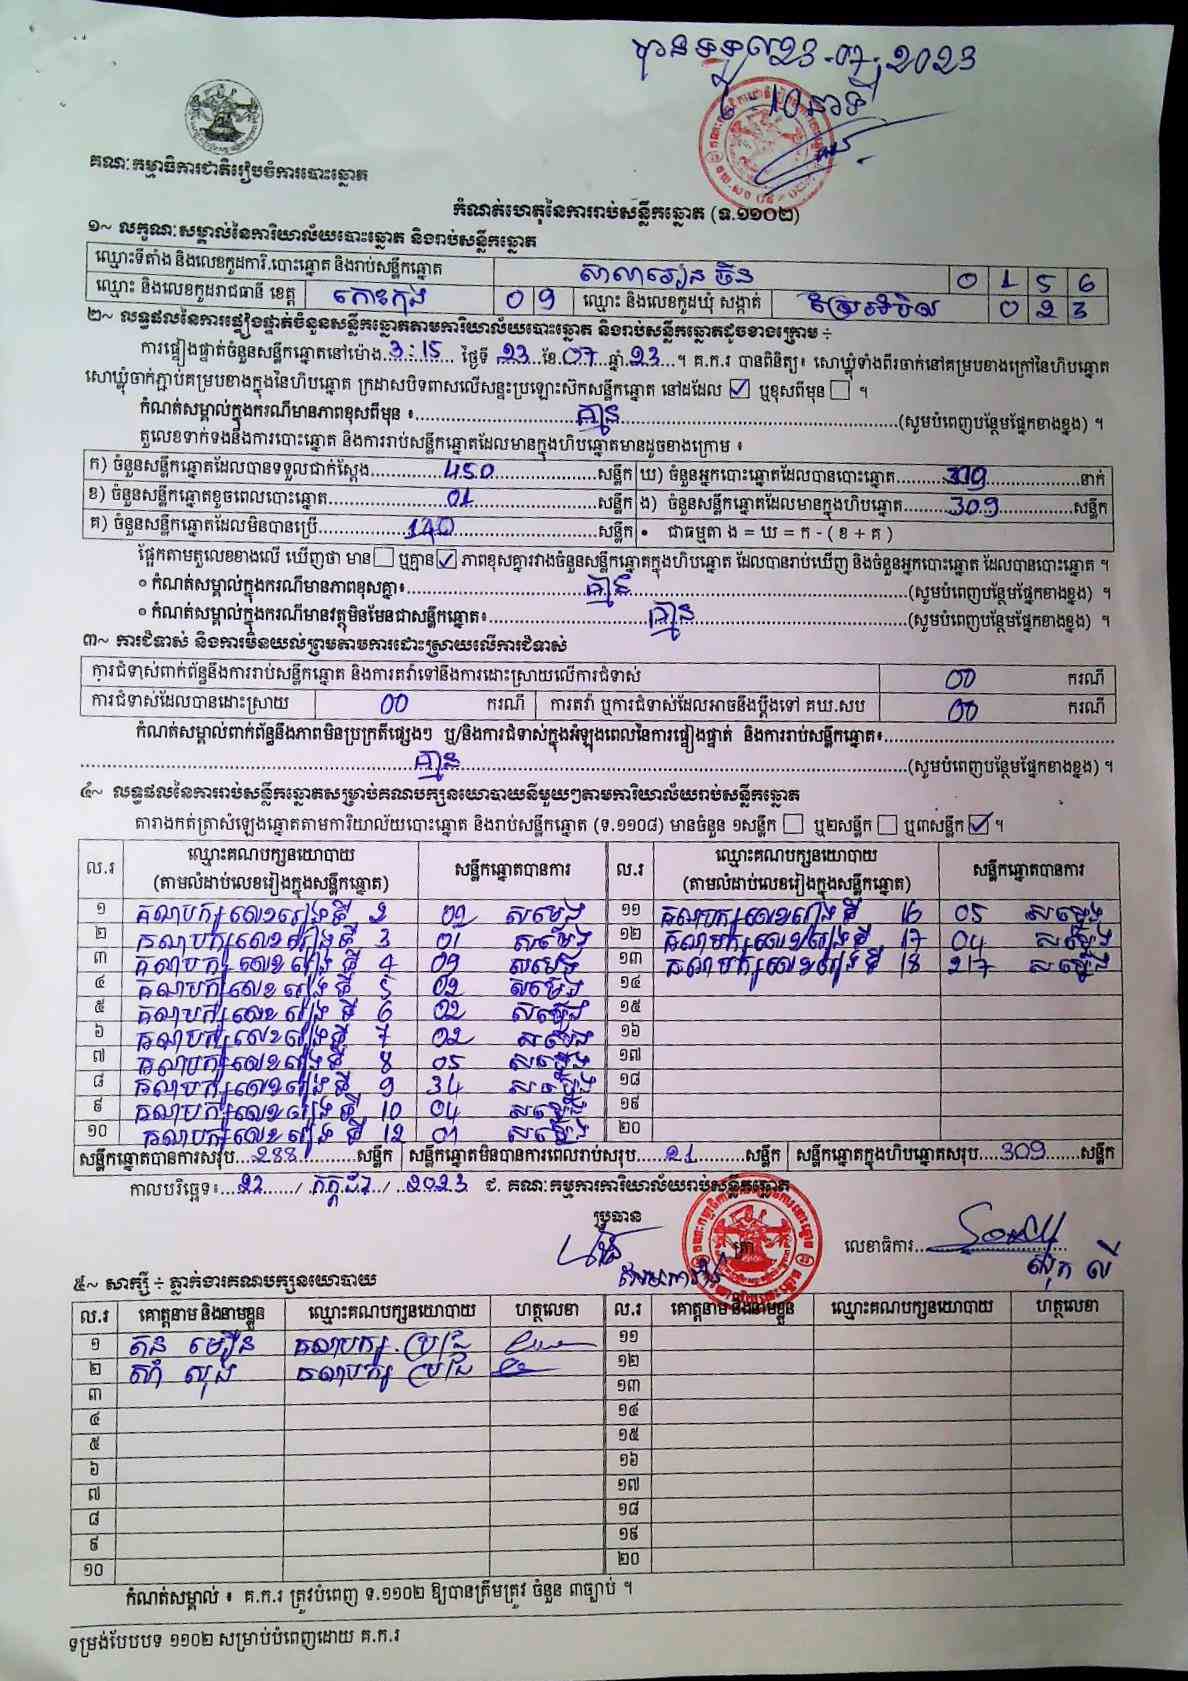 បានទទួល 23-07-2023
10 នាទី
គណៈកម្មាធិការជាតិរៀបចំការបោះឆ្នោត
កំណត់ហេតុនៃការរាប់សន្លឹកឆ្នោត (ទ.១១០២)
១~ លក្ខណៈសម្គាល់នៃការិយាល័យបោះឆ្នោត និងរាប់សន្លឹកឆ្នោត
ឈ្មោះទីតាំង និងលេខកូដការិ.បោះឆ្នោត និងរាប់សន្លឹកឆ្នោត សាលារៀន 0 1 5 6
ឈ្មោះ និងលេខកូដរាជធានី ខេត្ត កោះកុង 0 9 ឈ្មោះ និងលេខកូដឃុំ សង្កាត់ 0 2 3
២~ លទ្ធផលនៃការផ្ទៀងផ្ទាត់ចំនួនសន្លឹកឆ្នោតតាមការិយាល័យបោះឆ្នោត និងរាប់សន្លឹកឆ្នោតដូចខាងក្រោម ÷
ការផ្ទៀងផ្ទាត់ចំនួនសន្លឹកឆ្នោតនៅម៉ោង 3:15 ថ្ងៃទី 23 ខែ 07 ឆ្នាំ 23 ។ គ.ក.រ បានពិនិត្យ៖ សោឃ្លុំទាំងពីរចាក់នៅគម្របខាងក្រៅនៃហិបឆ្នោត
សោឃ្លុំចាក់ភ្ជាប់គម្របខាងក្នុងនៃហិបឆ្នោត ក្រដាសបិទពាសលើសន្ទះប្រឡោះស៊កសន្លឹកឆ្នោត នៅដដែល ☑ ឬខុសពីមុន ☐ ។
កំណត់សម្គាល់ក្នុងករណីមានភាពខុសពីមុន ៖ គ្មាន (សូមបំពេញបន្ថែមផ្នែកខាងខ្នង) ។
តួលេខទាក់ទងនឹងការបោះឆ្នោត និងការរាប់សន្លឹកឆ្នោតដែលមានក្នុងហិបឆ្នោតមានដូចខាងក្រោម ៖
ក) ចំនួនសន្លឹកឆ្នោតដែលបានទទួលជាក់ស្តែង 450 សន្លឹក ឃ) ចំនួនអ្នកបោះឆ្នោតដែលបានបោះឆ្នោត 309 នាក់
ខ) ចំនួនសន្លឹកឆ្នោតខូចពេលបោះឆ្នោត 01 សន្លឹក ង) ចំនួនសន្លឹកឆ្នោតដែលមានក្នុងហិបឆ្នោត 309 សន្លឹក
គ) ចំនួនសន្លឹកឆ្នោតដែលមិនបានប្រើ 140 សន្លឹក • ជាធម្មតា ង = ឃ = ក - ( ខ + គ )
ផ្អែកតាមតួលេខខាងលើ ឃើញថា មាន ☐ ឬគ្មាន ☑ ភាពខុសគ្នារវាងចំនួនសន្លឹកឆ្នោតក្នុងហិបឆ្នោត ដែលបានរាប់ឃើញ និងចំនួនអ្នកបោះឆ្នោត ដែលបានបោះឆ្នោត ។
○ កំណត់សម្គាល់ក្នុងករណីមានភាពខុសគ្នា៖ គ្មាន (សូមបំពេញបន្ថែមផ្នែកខាងខ្នង) ។
○ កំណត់សម្គាល់ក្នុងករណីមានវត្ថុមិនមែនជាសន្លឹកឆ្នោត៖ គ្មាន (សូមបំពេញបន្ថែមផ្នែកខាងខ្នង) ។
៣~ ការជំទាស់ និងការមិនយល់ព្រមតាមការដោះស្រាយលើការជំទាស់
ការជំទាស់ពាក់ព័ន្ធនឹងការរាប់សន្លឹកឆ្នោត និងការតវ៉ាទៅនឹងការដោះស្រាយលើការជំទាស់ 00 ករណី
ការជំទាស់ដែលបានដោះស្រាយ 00 ករណី ការតវ៉ា ឬការជំទាស់ដែលអាចនឹងប្តឹងទៅ គឃ.សប 00 ករណី
កំណត់សម្គាល់ពាក់ព័ន្ធនឹងភាពមិនប្រក្រតីផ្សេងៗ ឬ/និងការជំទាស់ក្នុងអំឡុងពេលនៃការផ្ទៀងផ្ទាត់ និងការរាប់សន្លឹកឆ្នោត៖
គ្មាន (សូមបំពេញបន្ថែមផ្នែកខាងខ្នង) ។
៤~ លទ្ធផលនៃការរាប់សន្លឹកឆ្នោតសម្រាប់គណបក្សនយោបាយនីមួយៗតាមការិយាល័យរាប់សន្លឹកឆ្នោត
តារាងកត់ត្រាសំឡេងឆ្នោតតាមការិយាល័យបោះឆ្នោត និងរាប់សន្លឹកឆ្នោត (ទ.១១០៨) មានចំនួន ១សន្លឹក ☐ ឬ២សន្លឹក ☐ ឬ៣សន្លឹក ☑ ។
ល.រ ឈ្មោះគណបក្សនយោបាយ (តាមលំដាប់លេខរៀងក្នុងសន្លឹកឆ្នោត) សន្លឹកឆ្នោតបានការ ល.រ ឈ្មោះគណបក្សនយោបាយ (តាមលំដាប់លេខរៀងក្នុងសន្លឹកឆ្នោត) សន្លឹកឆ្នោតបានការ
១ គណបក្សលេខរៀងទី 2 02 សម្លេង ១១ គណបក្សលេខរៀងទី 16 05 សម្លេង
២ គណបក្សលេខរៀងទី 3 01 សម្លេង ១២ គណបក្សលេខរៀងទី 17 04 សម្លេង
៣ គណបក្សលេខរៀងទី 4 09 សម្លេង ១៣ គណបក្សលេខរៀងទី 18 217 សម្លេង
៤ គណបក្សលេខរៀងទី 5 02 សម្លេង ១៤
៥ គណបក្សលេខរៀងទី 6 02 សម្លេង ១៥
៦ គណបក្សលេខរៀងទី 7 02 សម្លេង ១៦
៧ គណបក្សលេខរៀងទី 8 05 សម្លេង ១៧
៨ គណបក្សលេខរៀងទី 9 34 សម្លេង ១៨
៩ គណបក្សលេខរៀងទី 10 04 សម្លេង ១៩
១០ គណបក្សលេខរៀងទី 12 01 សម្លេង ២០
សន្លឹកឆ្នោតបានការសរុប 288 សន្លឹក សន្លឹកឆ្នោតមិនបានការពេលរាប់សរុប 21 សន្លឹក សន្លឹកឆ្នោតក្នុងហិបឆ្នោតសរុប 309 សន្លឹក
កាលបរិច្ឆេទ៖ 23 / កក្កដា / 2023 ជ. គណៈកម្មការការិយាល័យរាប់សន្លឹកឆ្នោត
ប្រធាន
ត្រា លេខាធិការ
សុក លី
៥~ សាក្សី ÷ ភ្នាក់ងារគណបក្សនយោបាយ
ល.រ គោត្តនាម និងនាមខ្លួន ឈ្មោះគណបក្សនយោបាយ ហត្ថលេខា ល.រ គោត្តនាម និងនាមខ្លួន ឈ្មោះគណបក្សនយោបាយ ហត្ថលេខា
១ តន មឿន គណបក្ស ប្រជា ១១
២ សុង គណបក្ស ប្រជា ១២
៣ ១៣
៤ ១៤
៥ ១៥
៦ ១៦
៧ ១៧
៨ ១៨
៩ ១៩
១០ ២០
កំណត់សម្គាល់ ៖ គ.ក.រ ត្រូវបំពេញ ទ.១១០២ ឱ្យបានត្រឹមត្រូវ ចំនួន ៣ច្បាប់ ។
ទម្រង់បែបបទ ១១០២ សម្រាប់បំពេញដោយ គ.ក.រ